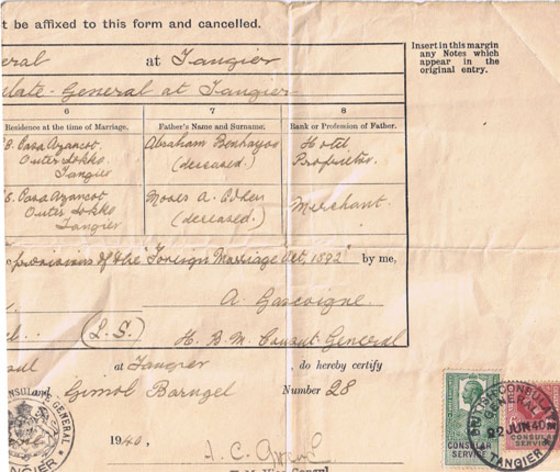 t be affixed to this form and cancelled.
eral at Tangier
Insert in this margin
any Notes which
appear in the
original entry.
ulate-General at Tangier
6 7 8
Residence at the time of Marriage. Father's Name and Surname. Rank or Profession of Father.
Casa Azancot Abraham Hotel
Outer Sokko (deceased.) Proprietor.
Tangier
Casa Azancot Moses A. Cohen Merchant.
Outer Sokko (deceased.)
Tangier
provisions of the "Foreign Marriage Act, 1892" by me,
A. Gascoigne
(L.S.) H. B. M. Consul General
sul at Tangier, do hereby certify
Gimol Number 28
1940.
GENERAL
BRITISH CONSULATE
GENERAL
22 JUN 40
TANGIER
CONSULAR
SERVICE
CONSULAR
SERVICE